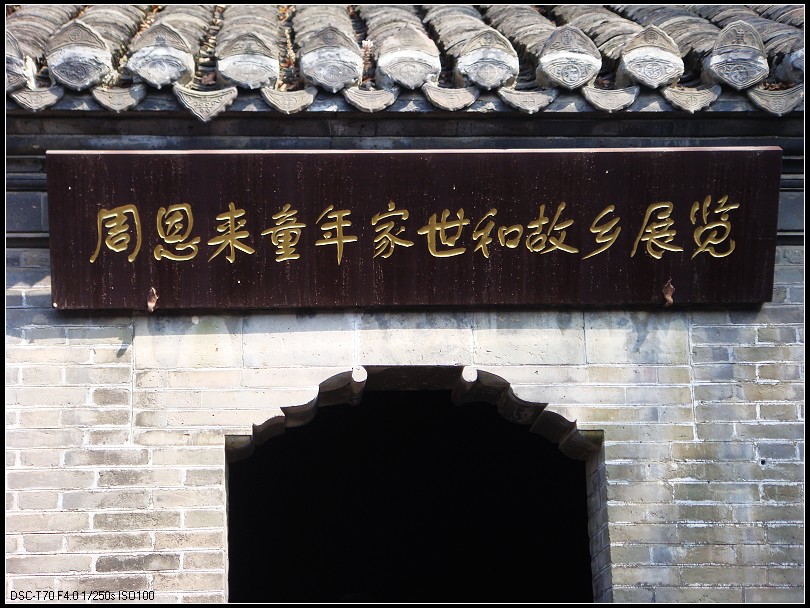 周恩来童年家世和故乡展览
DSC-T70 F4.0 1/250s ISO100